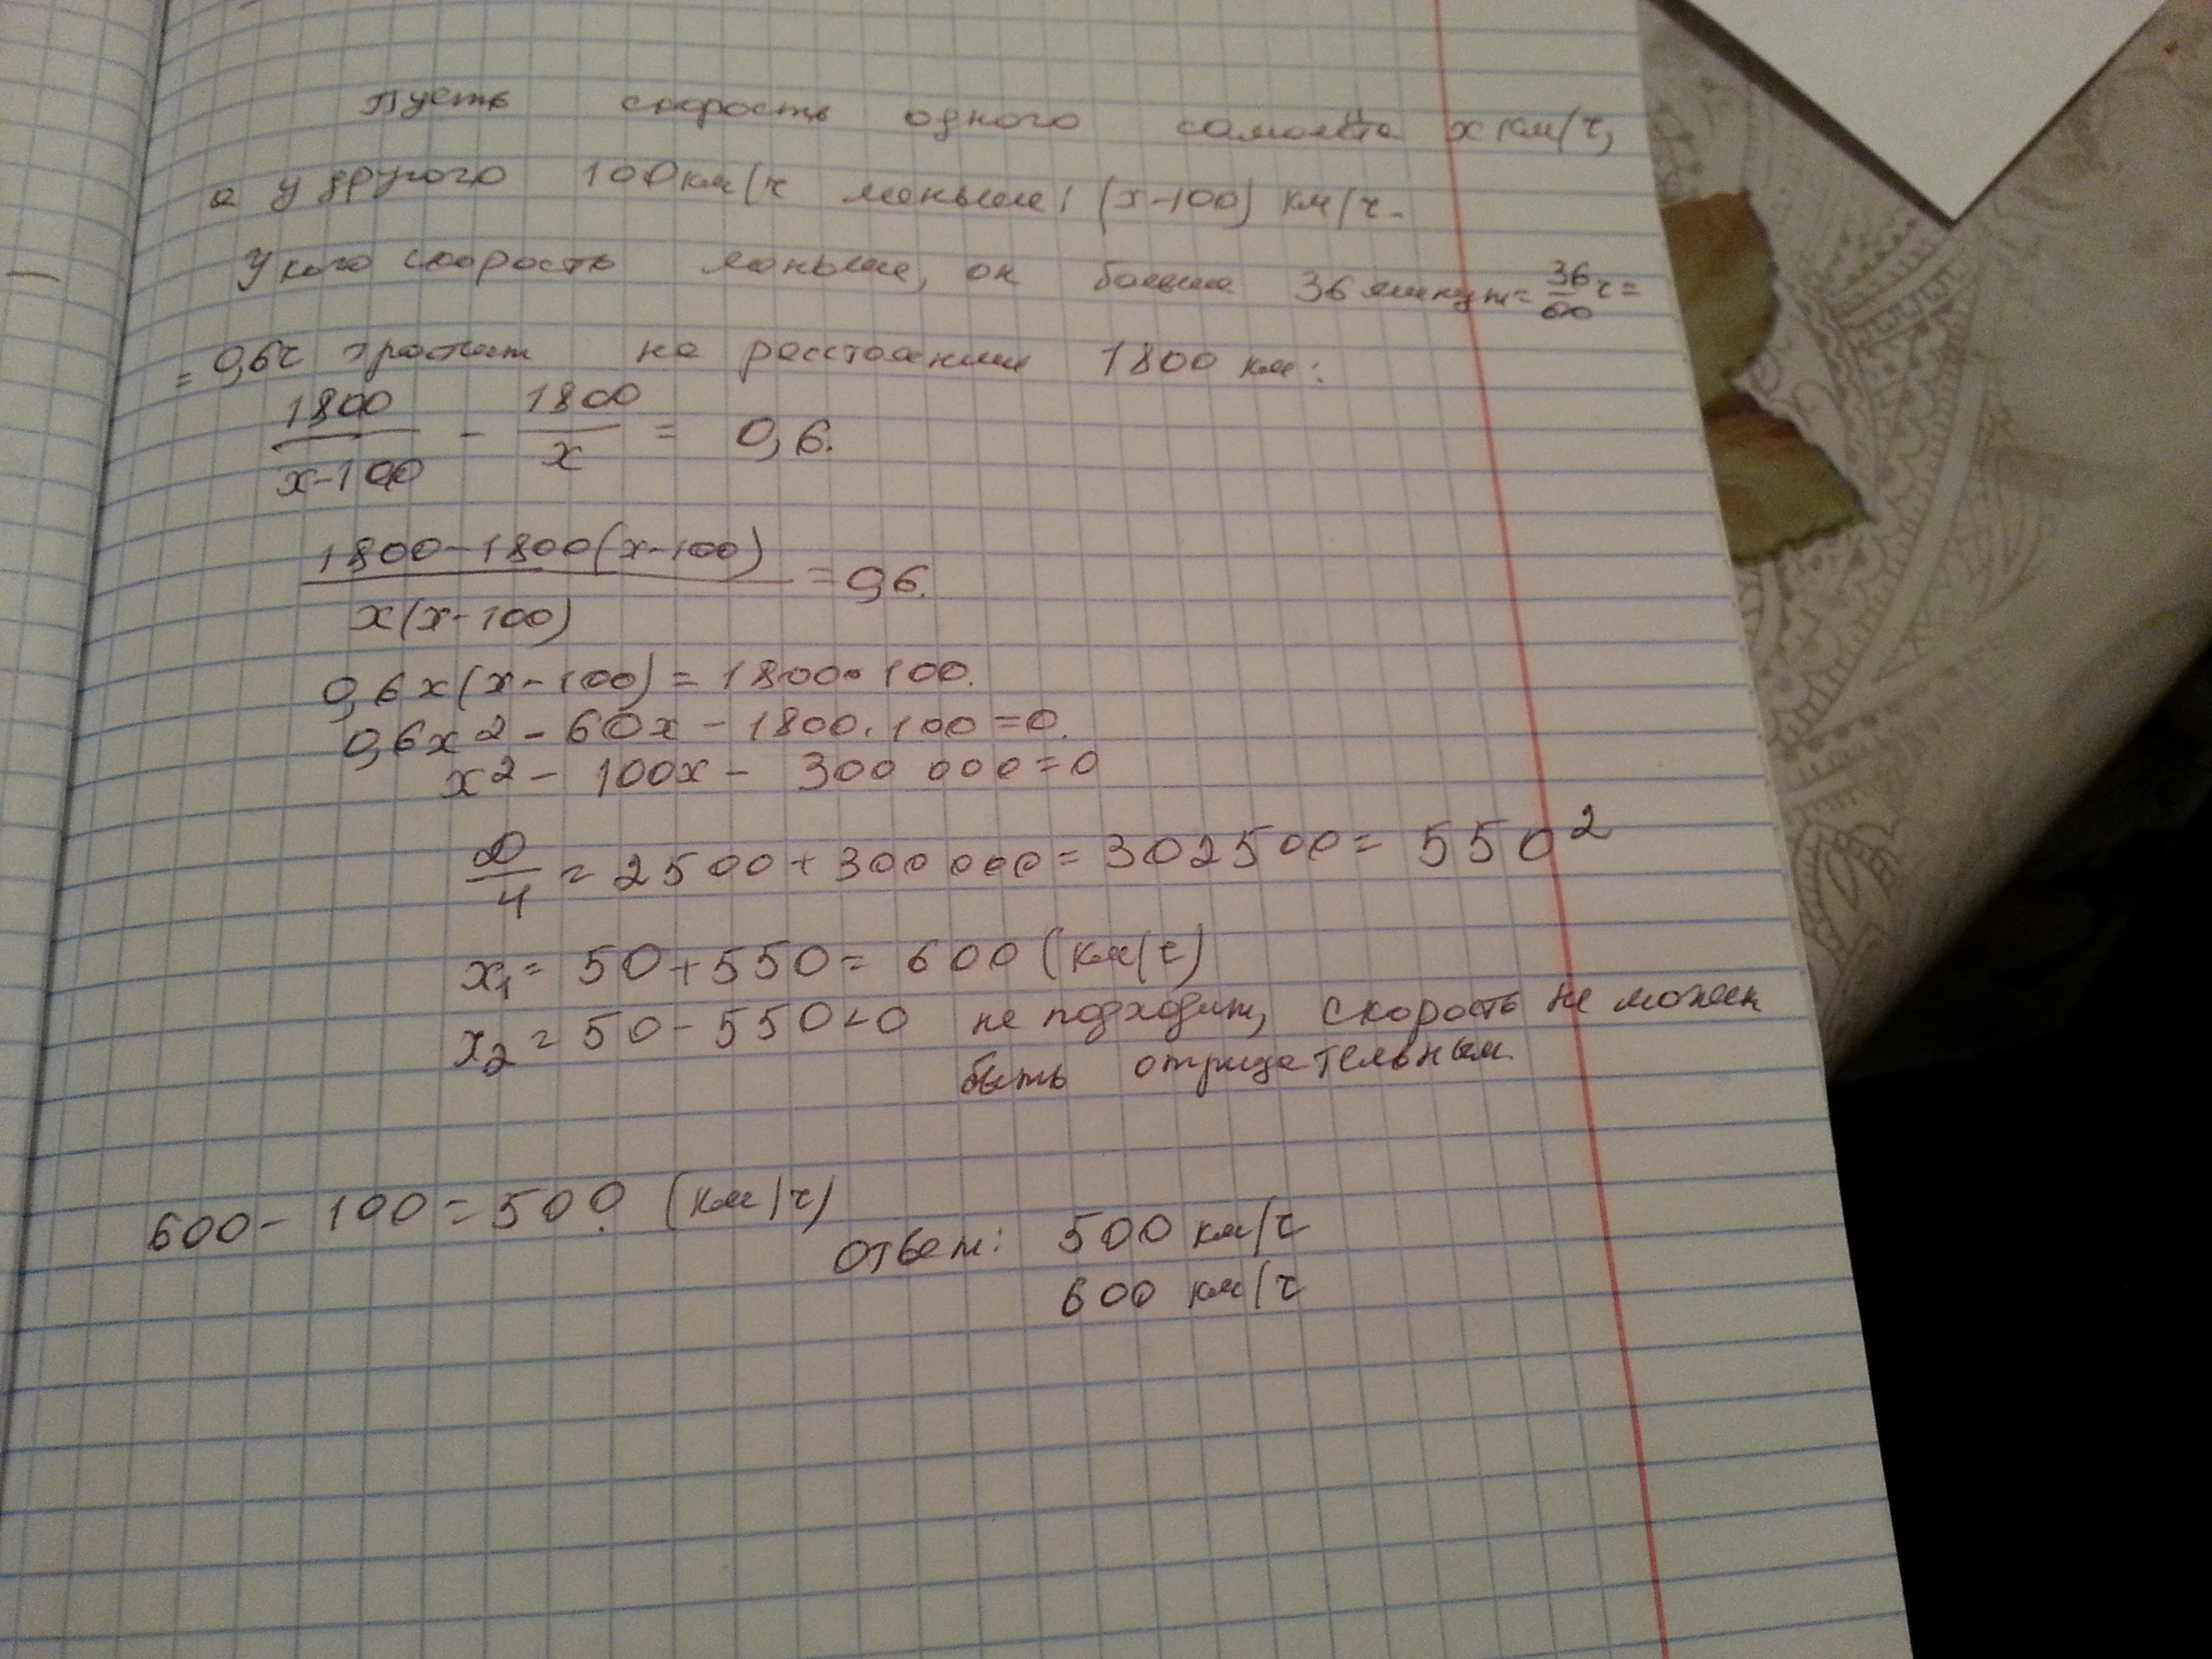 Пусть скорость одного самолёта x км/ч,
а у другого 100 км/ч меньше: (x-100) км/ч.
У кого скорость меньше, он больше 36 минут = 36/60 ч =
= 0,6ч тратит на расстояние 1800 км:
1800/(x-100) - 1800/x = 0,6.
(1800-1800(x-100))/(x(x-100)) = 0,6.
0,6x(x-100) = 1800·100.
0,6x² - 60x - 1800·100 = 0.
x² - 100x - 300 000 = 0
D/4 = 2500 + 300 000 = 302500 = 550²
x₁ = 50 + 550 = 600 (км/ч)
x₂ = 50 - 550 < 0 не подходит, скорость не может
быть отрицательным.
600 - 100 = 500 (км/ч)
Ответ: 500 км/ч
600 км/ч